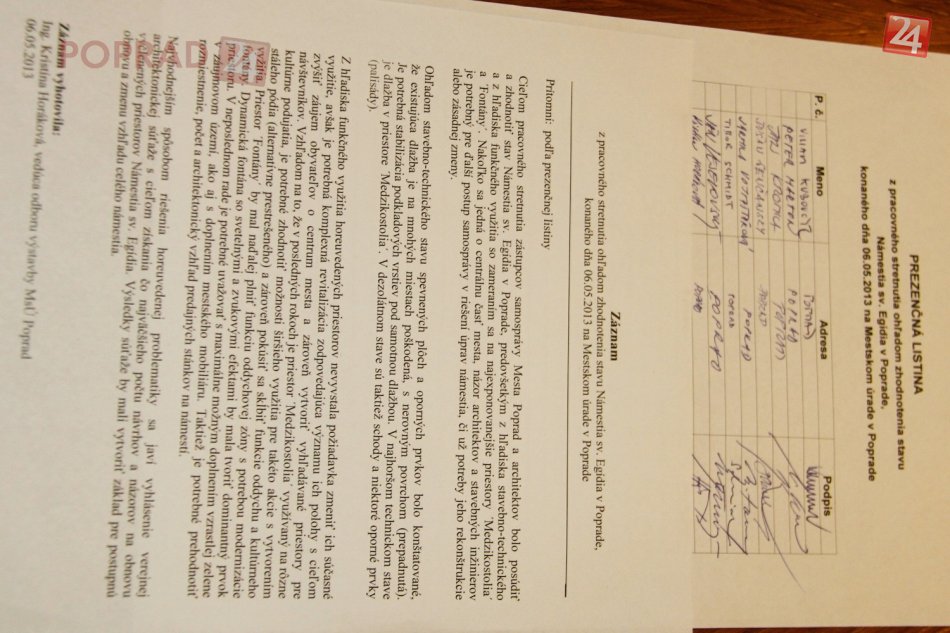 24
POPRAD 24
PREZENČNÁ LISTINA
z pracovného stretnutia ohľadom zhodnotenia stavu
Námestia sv. Egídia v Poprade,
konaného dňa 06.05.2013 na Mestskom úrade v Poprade
P. č. Meno Adresa Podpis
VILIAM
PETER MARTON POPRAD
POPRAD
TIBOR SCHMIDT
POPRAD
Záznam
z pracovného stretnutia ohľadom zhodnotenia stavu Námestia sv. Egídia v Poprade,
konaného dňa 06.05.2013 na Mestskom úrade v Poprade
Prítomní: podľa prezenčnej listiny
Cieľom pracovného stretnutia zástupcov samosprávy Mesta Poprad a architektov bolo posúdiť
a zhodnotiť stav Námestia sv. Egídia v Poprade, predovšetkým z hľadiska stavebno-technického
a hľadiska funkčného využitia so zameraním sa na najexponovanejšie priestory ´Medzikostolia´
a ´Fontány´. Nakoľko sa jedná o centrálnu časť mesta, názor architektov a stavebných inžinierov
je potrebný pre ďalší postup samosprávy v riešení úprav námestia, či už potreby jeho rekonštrukcie
alebo zásadnej zmeny.
Ohľadom stavebno-technického stavu spevnených plôch a oporných prvkov bolo konštatované,
že existujúca dlažba je na mnohých miestach poškodená, s nerovným povrchom (prepadnutá).
Je potrebná stabilizácia podkladových vrstiev pod samotnou dlažbou. V najhoršom technickom stave
je dlažba v priestore ´Medzikostolia´. V dezolátnom stave sú taktiež schody a niektoré oporné prvky
(palisády).
Z hľadiska funkčného využitia horeuvedených priestorov nevyvstala požiadavka zmeniť ich súčasné
využitie, avšak je potrebná komplexná revitalizácia zodpovedajúca významu ich polohy s cieľom
zvýšiť záujem obyvateľov o centrum mesta a zároveň vytvoriť vyhľadávané priestory pre
návštevníkov. Vzhľadom na to, že v posledných rokoch je priestor ´Medzikostolia´ využívaný na rôzne
kultúrne podujatia, je potrebné zhodnotiť možnosti širšieho využitia pre takéto akcie s vytvorením
stáleho pódia (alternatívne prestrešeného) a zároveň pokúsiť sa skĺbiť funkcie oddychu a kultúrneho
využitia. Priestor ´Fontány´ by mal naďalej plniť funkciu oddychovej zóny s potrebou modernizácie
fontány. Dynamická fontána so svetelnými a zvukovými efektami by mala tvoriť dominantný prvok
priestoru. V neposlednom rade je potrebné uvažovať s maximálne možným doplnením vzrastlej zelene
v záujmovom území, ako aj s doplnením mestského mobiliáru. Taktiež je potrebné prehodnotiť
rozmiestnenie, počet a architektonický vzhľad predajných stánkov na námestí.
Najvhodnejším spôsobom riešenia horeuvedenej problematiky sa javí vyhlásenie verejnej
architektonickej súťaže s cieľom získania čo najväčšieho počtu návrhov a názorov na obnovu
vyčlenených priestorov Námestia sv. Egídia. Výsledky súťaže by mali vytvoriť základ pre postupnú
obnovu a zmenu vzhľadu celého námestia.
Záznam vyhotovila:
Ing. Kristína Horáková, vedúca odboru výstavby MsÚ Poprad
06.05.2013